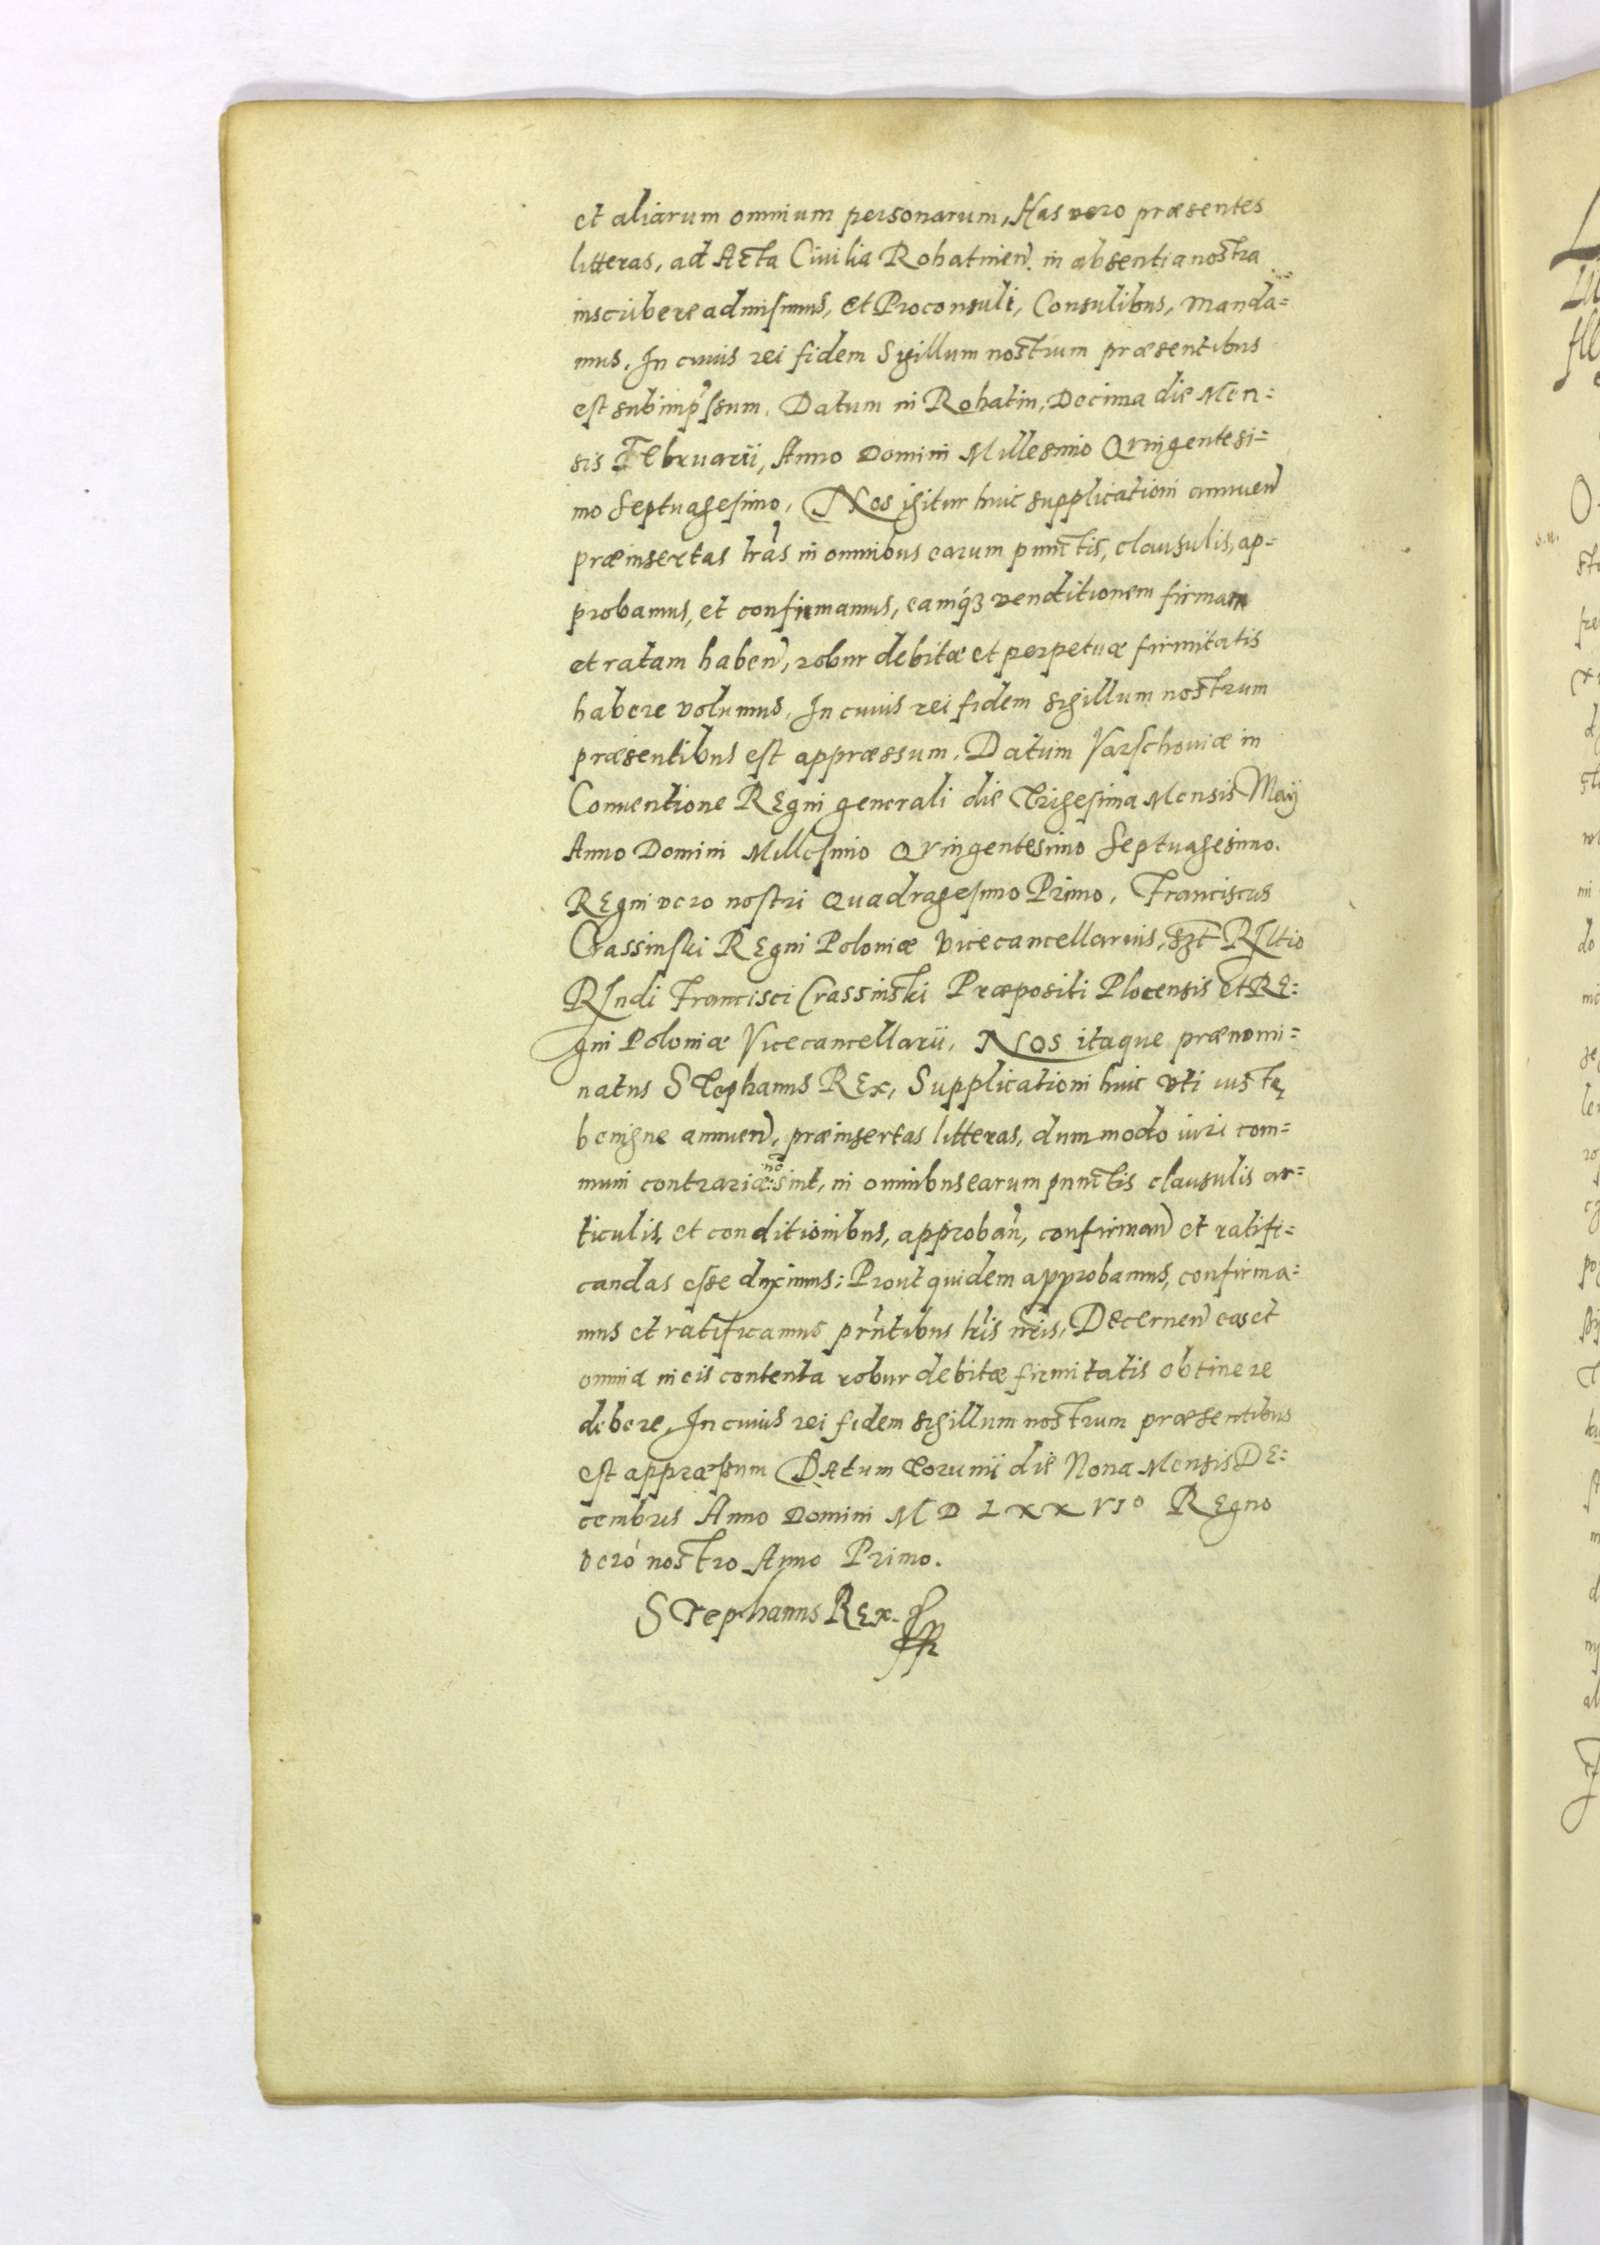 et aliarum omnium personarum, Has vero præsentes
litteras, ad Acta Ciuilia Rohatinen̄. in absentia nostra
inscribere admisimus, et Proconsuli, Consulibus, manda=
mus. In cuius rei fidem Sigillum nostrum præsentibus
est subimp̄ssum. Datum in Rohatin, Decima die Men=
sis Februarii, Anno Domini Millesimo Qvingentesi=
mo Septuagesimo. Nos igitur huic supplicationi annuen̄
præinsertas lr̄as in omnibus earum punctis, clausulis, ap=
probamus, et confirmamus, eamq́ꝫ venditionem firmam
et ratam haben̄, robur debitæ et perpetuæ firmitatis
habere volumus. In cuius rei fidem sigillum nostrum
præsentibus est appræssum. Datum Varschouiæ in
Conuentione REgni generali die Trigesima Mensis Maÿ
Anno Domini Millesimo Qvingentesimo Septuagesimo.
REgni vero nostri Quadragesimo Primo. Franciscus
Crassinski REgni Poloniæ Vicecancellarius, Rℓtio
Rℓndi Francisci Crassinski Præpositi Plocensis et RE=
gni Poloniæ Vicecancellarii. NOS itaque prænomi=
natus STephanus REx, Supplicationi huic vti iustę
benigne annuen̄, præinsertas litteras, dummodo iuri com=
muni contrariæ nō sint, in omnibus earum punctis clausulis ar=
ticulis et conditionibus, approban̄, confirman̄ et ratifi=
candas esse duximus: Prout quidem approbamus, confirma=
mus et ratificamus pr̄ntibus lr̄is nr̄is, Decernen̄ eas et
omnia in eis contenta robur debitæ firmitatis obtinere
debere, In cuius rei fidem sigillum nostrum præsentibus
est appræssum Datum Torunii die Nona Mensis DE=
cembris Anno Domini M D L X X VI° REgno
veró nostro Anno Primo.
STephanus REx.